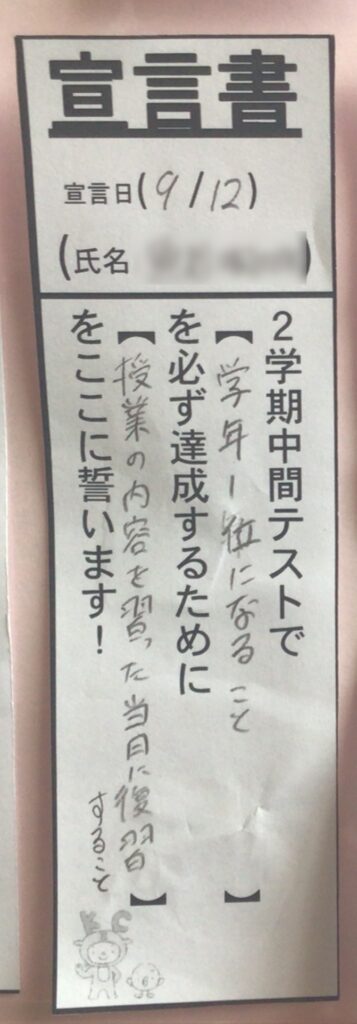 宣言書
宣言日(9/12)
(氏名 )
2学期中間テストで
【学年1位になること】
を必ず達成するために
【授業の内容を習った当日に後習
すること】
をここに誓います!
KC